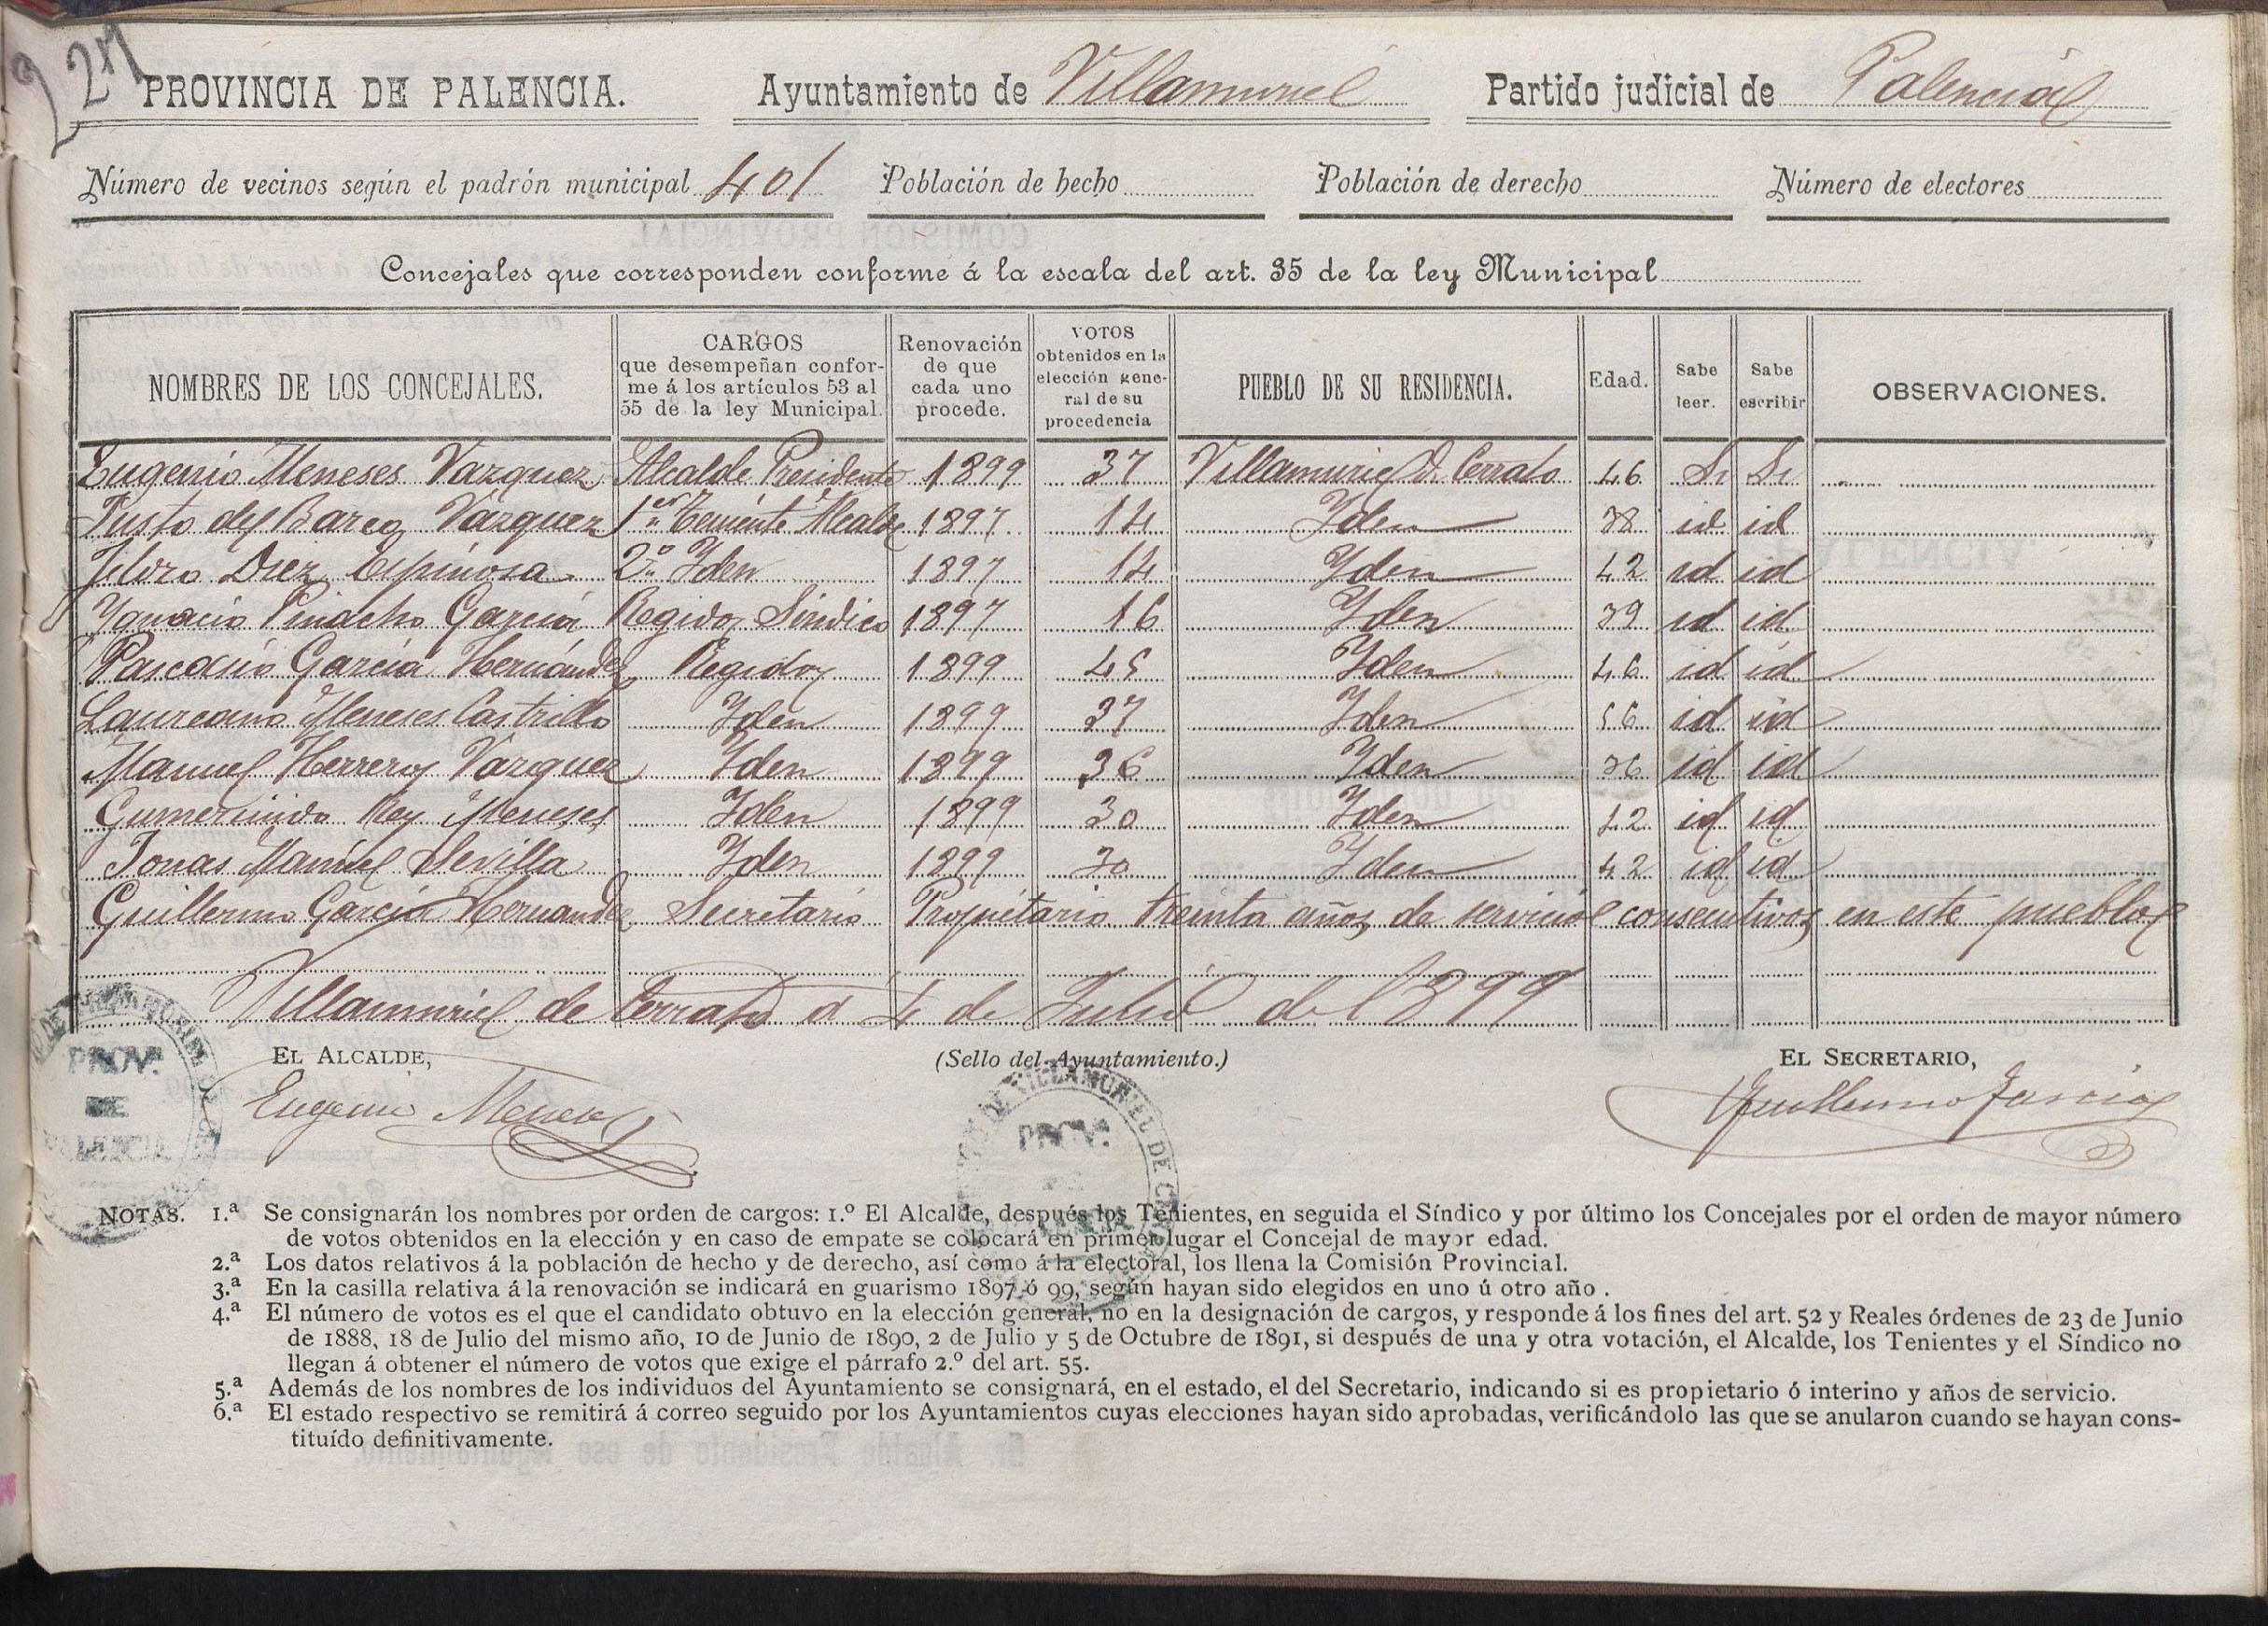 227
PROVINCIA DE PALENCIA. Ayuntamiento de Villamuriel Partido judicial de Palencia
Número de vecinos según el padrón municipal 401 Población de hecho Población de derecho Número de electores
Concejales que corresponden conforme á la escala del art. 35 de la ley Municipal
NOMBRES DE LOS CONCEJALES. CARGOS que desempeñan conforme á los artículos 53 al 55 de la ley Municipal. Renovación de que cada uno procede. VOTOS obtenidos en la elección general de su procedencia PUEBLO DE SU RESIDENCIA. Edad. Sabe leer. Sabe escribir OBSERVACIONES.
Eugenio Meneses Vazquez Alcalde Presidente 1899 37 Villamuriel de Cerrato 46 Si Si
Justo del Barco Vázquez 1er Teniente Alcalde 1897 14 Yden 38 id id
Ysidro Diez Espinosa 2º Yden 1897 14 Yden 42 id id
Ygnacio Pinacho García Regidor Sindico 1897 16 Yden 39 id id
Pascasio García Hernández Regidor 1899 45 Yden 46 id id
Laureano Meneses Castrillo Yden 1899 37 Yden 56 id id
Manuel Herrero Vazquez Yden 1899 36 Yden 36 id id
Gumersindo Rey Meneses Yden 1899 30 Yden 42 id id
Jonas Manuel Sevilla Yden 1899 30 Yden 42 id id
Guillermo García Hernandez Secretario Propietario treinta años de servicios consecutivos en este pueblo
Villamuriel de Cerrato a 4 de Julio de 1899
EL ALCALDE, (Sello del Ayuntamiento.) EL SECRETARIO,
Eugenio Meneses Guillermo García
PROV.ª DE PALENCIA
DE VILLAMURIEL DE PROV.ª
NOTAS. 1.ª Se consignarán los nombres por orden de cargos: 1.º El Alcalde, después los Tenientes, en seguida el Síndico y por último los Concejales por el orden de mayor número
de votos obtenidos en la elección y en caso de empate se colocará en primer lugar el Concejal de mayor edad.
2.ª Los datos relativos á la población de hecho y de derecho, así como á la electoral, los llena la Comisión Provincial.
3.ª En la casilla relativa á la renovación se indicará en guarismo 1897 ó 99, según hayan sido elegidos en uno ú otro año .
4.ª El número de votos es el que el candidato obtuvo en la elección general, no en la designación de cargos, y responde á los fines del art. 52 y Reales órdenes de 23 de Junio
de 1888, 18 de Julio del mismo año, 10 de Junio de 1890, 2 de Julio y 5 de Octubre de 1891, si después de una y otra votación, el Alcalde, los Tenientes y el Síndico no
llegan á obtener el número de votos que exige el párrafo 2.º del art. 55.
5.ª Además de los nombres de los individuos del Ayuntamiento se consignará, en el estado, el del Secretario, indicando si es propietario ó interino y años de servicio.
6.ª El estado respectivo se remitirá á correo seguido por los Ayuntamientos cuyas elecciones hayan sido aprobadas, verificándolo las que se anularon cuando se hayan cons-
tituído definitivamente.